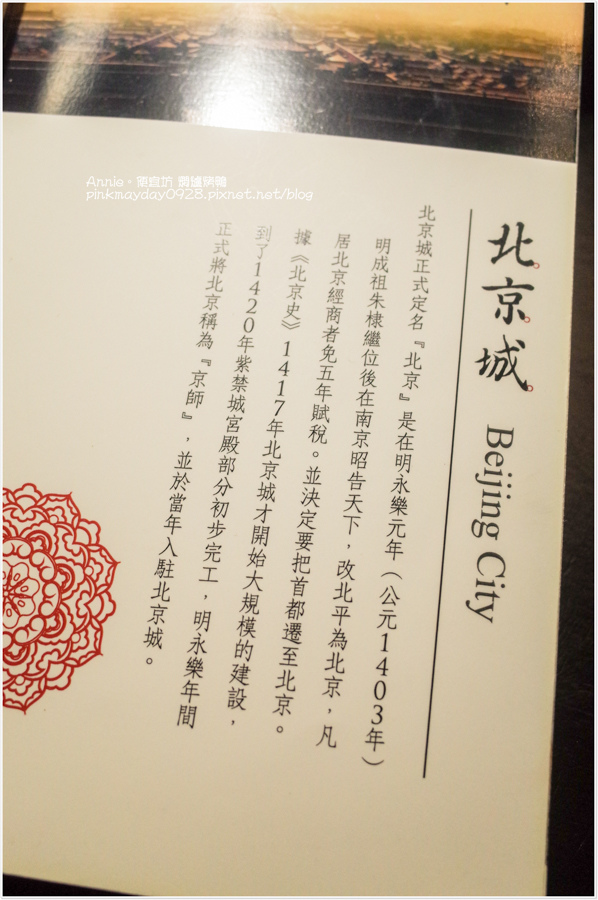 北京城 Beijing City
北京城正式定名『北京』是在明永樂元年（公元1403年）
明成祖朱棣繼位後在南京昭告天下，改北平為北京，凡
居北京經商者免五年賦稅。並決定要把首都遷至北京。
據《北京史》1417年北京城才開始大規模的建設，
到了1420年紫禁城宮殿部分初步完工，明永樂年間
正式將北京稱為『京師』，並於當年入駐北京城。
Annie。便宜坊 燜爐烤鴨
pinkmayday0928.pixnet.net/blog